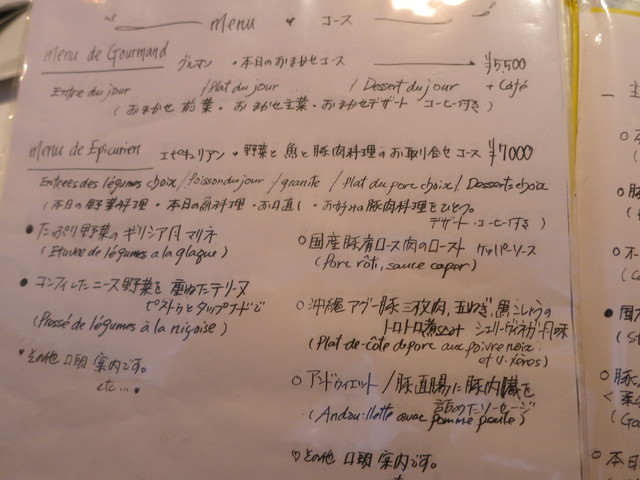 menu ♥ コース
Menu de Gourmand グルマン ・本日のおまかせコース ¥5,500
Entre du jour / Plat du jour / Dessert du jour + Café
(おまかせ前菜・おまかせ主菜・おまかせデザート コーヒー付き)
Menu de Epicurien エピキュリアン・野菜と魚と豚肉料理のお取り合せコース ¥7000
Entrees des légumes choix / poisson du jour / granite / Plat du porc choix / Desserts choix
(本日の野菜料理・本日の魚料理・お口直し・お好みの豚肉料理をひとつ。
デザート・コーヒー付き)
●たっぷり野菜のギリシア風マリネ
(Etuvée de légumes a la glaque)
●コンフィしたニース野菜を重ねたテリーヌ
ピストゥとタップナードで
(Pressé de légumes à la niçoise)
その他口頭案内です。
etc...
○国産豚肩ロース肉のロースト ケッパーソース
(Porc rôti, sauce caper)
○沖縄アグー豚三枚肉、玉ねぎ、黒こしょうの
トロトロ煮込み シェリーヴィネガー風味
(Plat-de-côte de porc aux poivre noix
et V. xérès)
○アンドゥイエット / 豚直腸に豚内臓を
詰めたソーセージ
(Andouillette avec pomme)
♡その他口頭案内です。